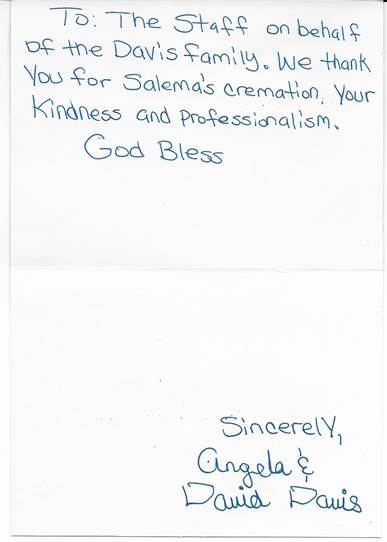 To: The Staff on behalf
of the Davis family. We thank
You for Salema's cremation, Your
Kindness and professionalism.
God Bless
Sincerely,
Angela &
David Davis